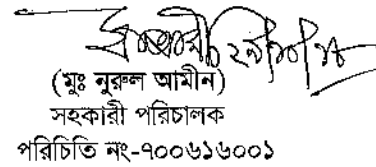 ২৯/১০/১৮
(মুঃ নুরুল আমীন)
সহকারী পরিচালক
পরিচিতি নং-৭০০৬১৬০০১